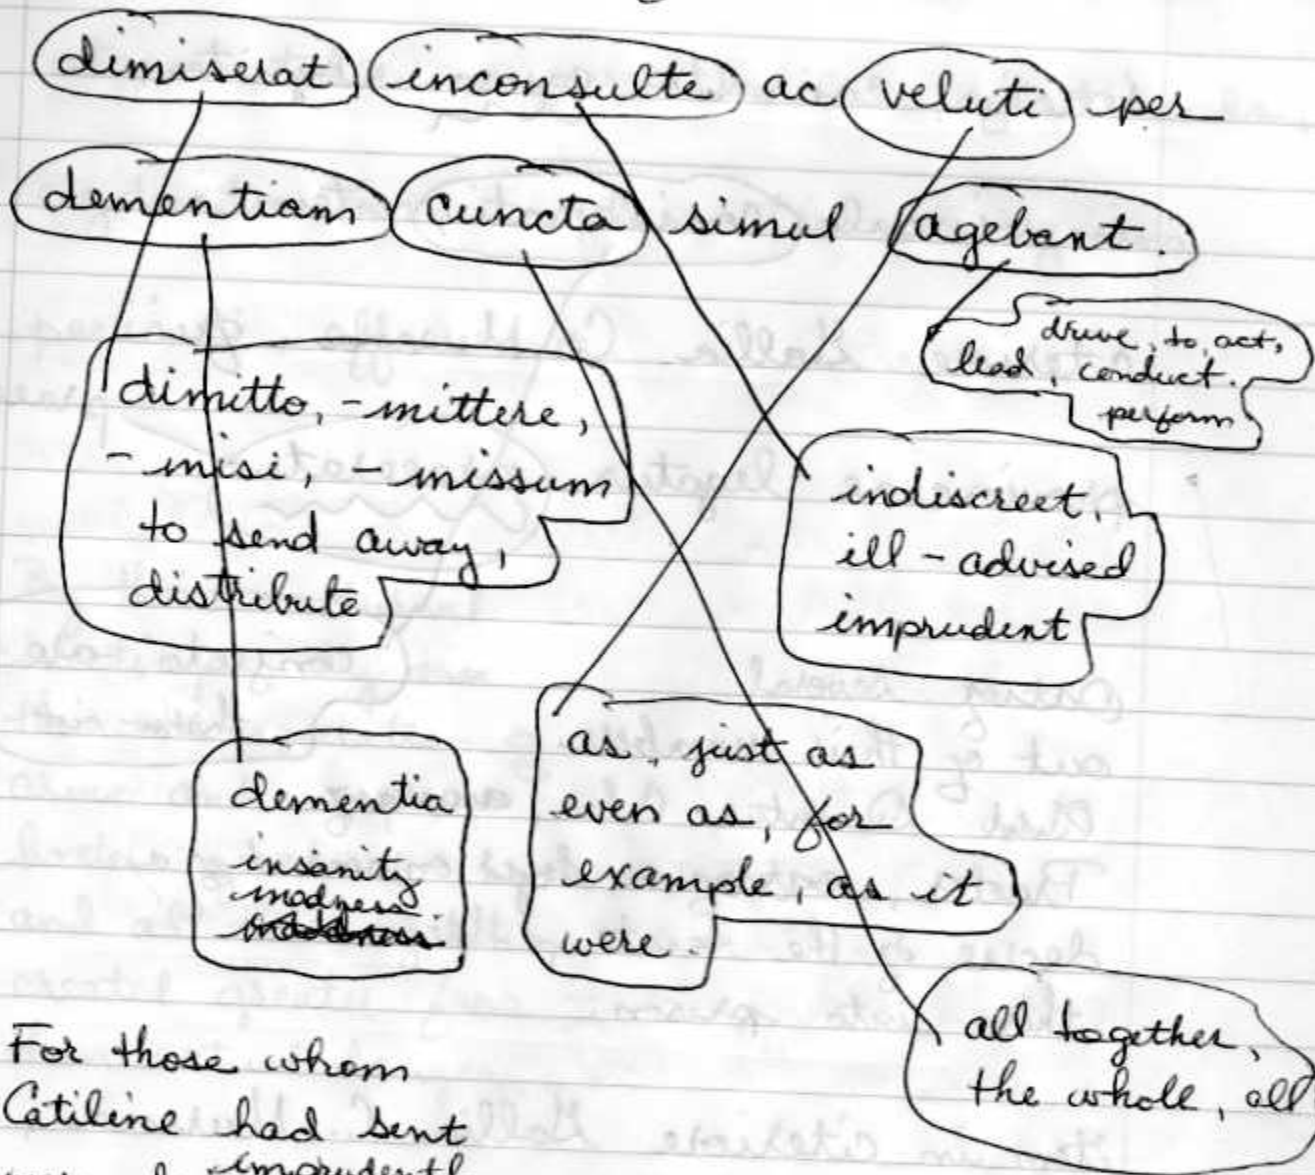 dimiserat inconsulte ac veluti per
dementiam cuncta simul agebant.
drive, to, act,
lead, conduct.
perform
dimitto, -mittere,
-misi, -missum
to send away,
distribute
indiscreet,
ill-advised
imprudent
as, just as
even as, for
example, as it
were.
dementia
insanity
madness
all together,
the whole, all
For those whom
Catiline had sent
imprudentl